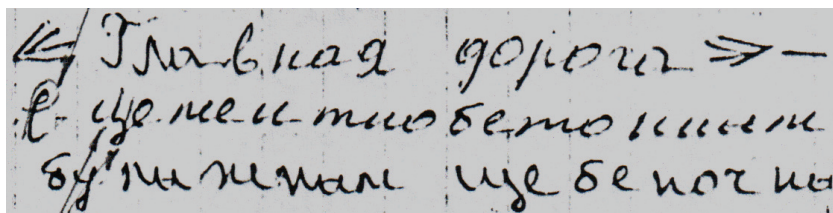 « Главная дорога » –
с цементнобетонным
булыжным щебеночны